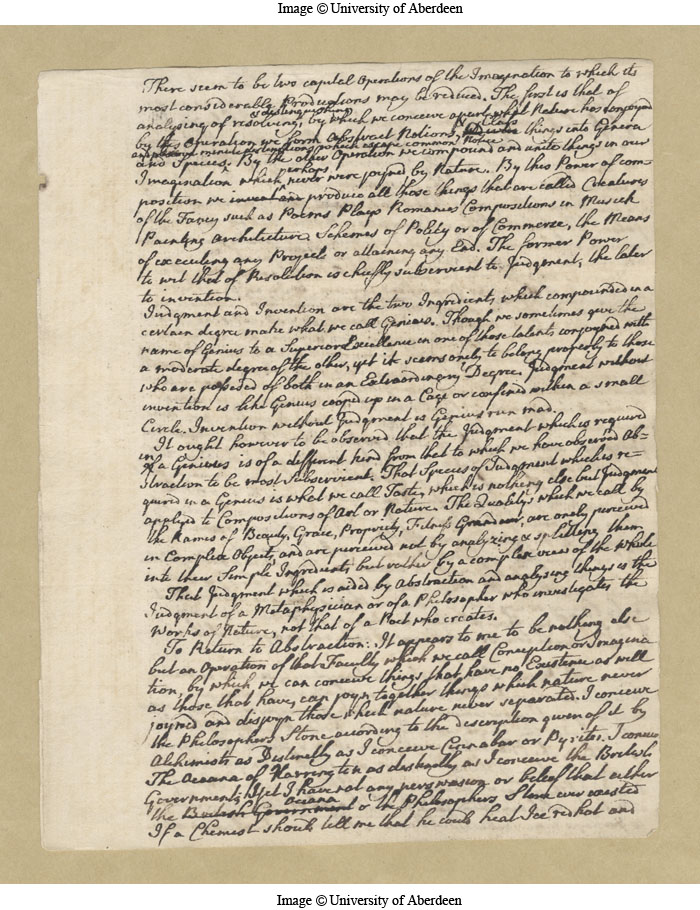 Image © University of Aberdeen
There seem to be two capital Operations of the Imagination to which its
most considerable Productions may be reduced. The first is that of
& distinguishing
analysing of resolving, by which we conceive apart what Nature has conjoyned
by this Operation we form Abstract Notions, things into Genera
and perceive minute distinctions which escape common Notice
and Species. By the other Operation we compound and unite things in our
perhaps
Imagination which never were joyned by Nature. By this Power of com-
position we invent and produce all those things that are called Creatures
of the Fancy such as Poems Plays Romances Compositions in Musick
Painting Architecture, Schemes of Polity or of Commerce, the Means
of executing any Project or attaining any End. The former Power
to wit that of Resolution is chiefly subservient to Judgment, the later
to invention.
Judgment and Invention are the two Ingredients which compounded in a
certain degree make what we call Genius. Though we sometimes give the
name of Genius to a Superior Excellence in one of those talents conjoyned with
a moderate degree of the other, yet it seems onely to belong properly to those
who are possessed of both in an Extraordinary Degree. Judgment without
invention is like Genius cooped up in a Cage or confined within a small
Circle. Invention without Judgment is Genius run mad.
It ought however to be observed that the Judgment which is required
in
of a Genius is of a different kind from that to which we have observed Ab-
straction to be most Subservient. That Species of Judgment which is re-
quired in a Genius is what we call Taste, which is nothing else but Judgment
applyed to Compositions of Art or Nature. The Quality which we call by
the Names of Beauty, Grace, Propriety, Fitness Grandeur, are onely perceived
in Complex Objects, and are perceived not by analyzing & splitting them
into their Simple Ingredients but rather by a complex view of the whole
That Judgment which is aided by Abstraction and analysing things is the
Judgment of a Metaphysician or of a Philosopher who investigates the
Works of Nature, not that of a Poet who creates.
To Return to Abstraction. It appears to me to be nothing else
but an Operation of that Faculty which we call Conception or Imagina
tion, by which we can conceive things that have no Existence as well
as those that have, can joyn together things which nature never
joyned and disjoyn those which nature never separated. I conceive
the Philosophers Stone according to the description given of it by
Alchemists as Distinctly as I conceive Cinnabar or Pyrites. I conceive
The Oceana of Harrington as distinctly as I conceive the British
Government, Yet I have not any perswasion or beleif that either
Oceana
the British Government or the Philosophers Stone ever existed
If a Chemist should tell me that he could heat Ice red hot and
Image © University of Aberdeen